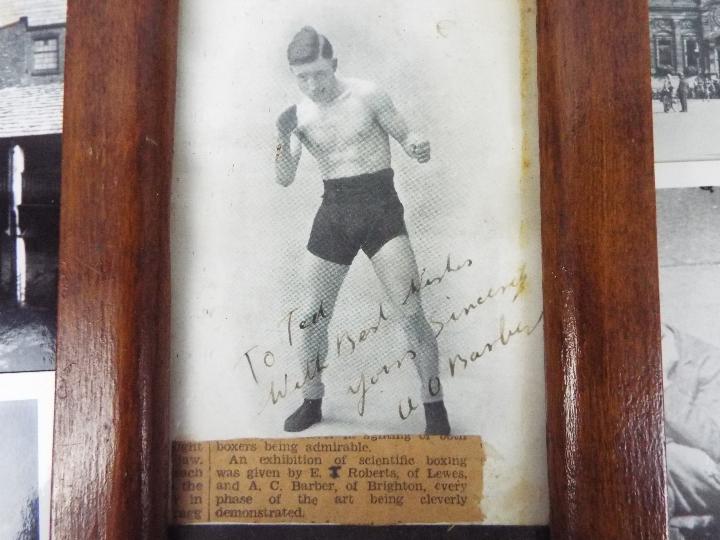 To Ted
With Best Wishes
Yours Sincerely
A C Barber
ight
aw.
each
the
in
fighting of both
boxers being admirable.
An exhibition of scientific boxing
was given by E. T Roberts, of Lewes,
and A. C. Barber, of Brighton, every
phase of the art being cleverly
demonstrated.